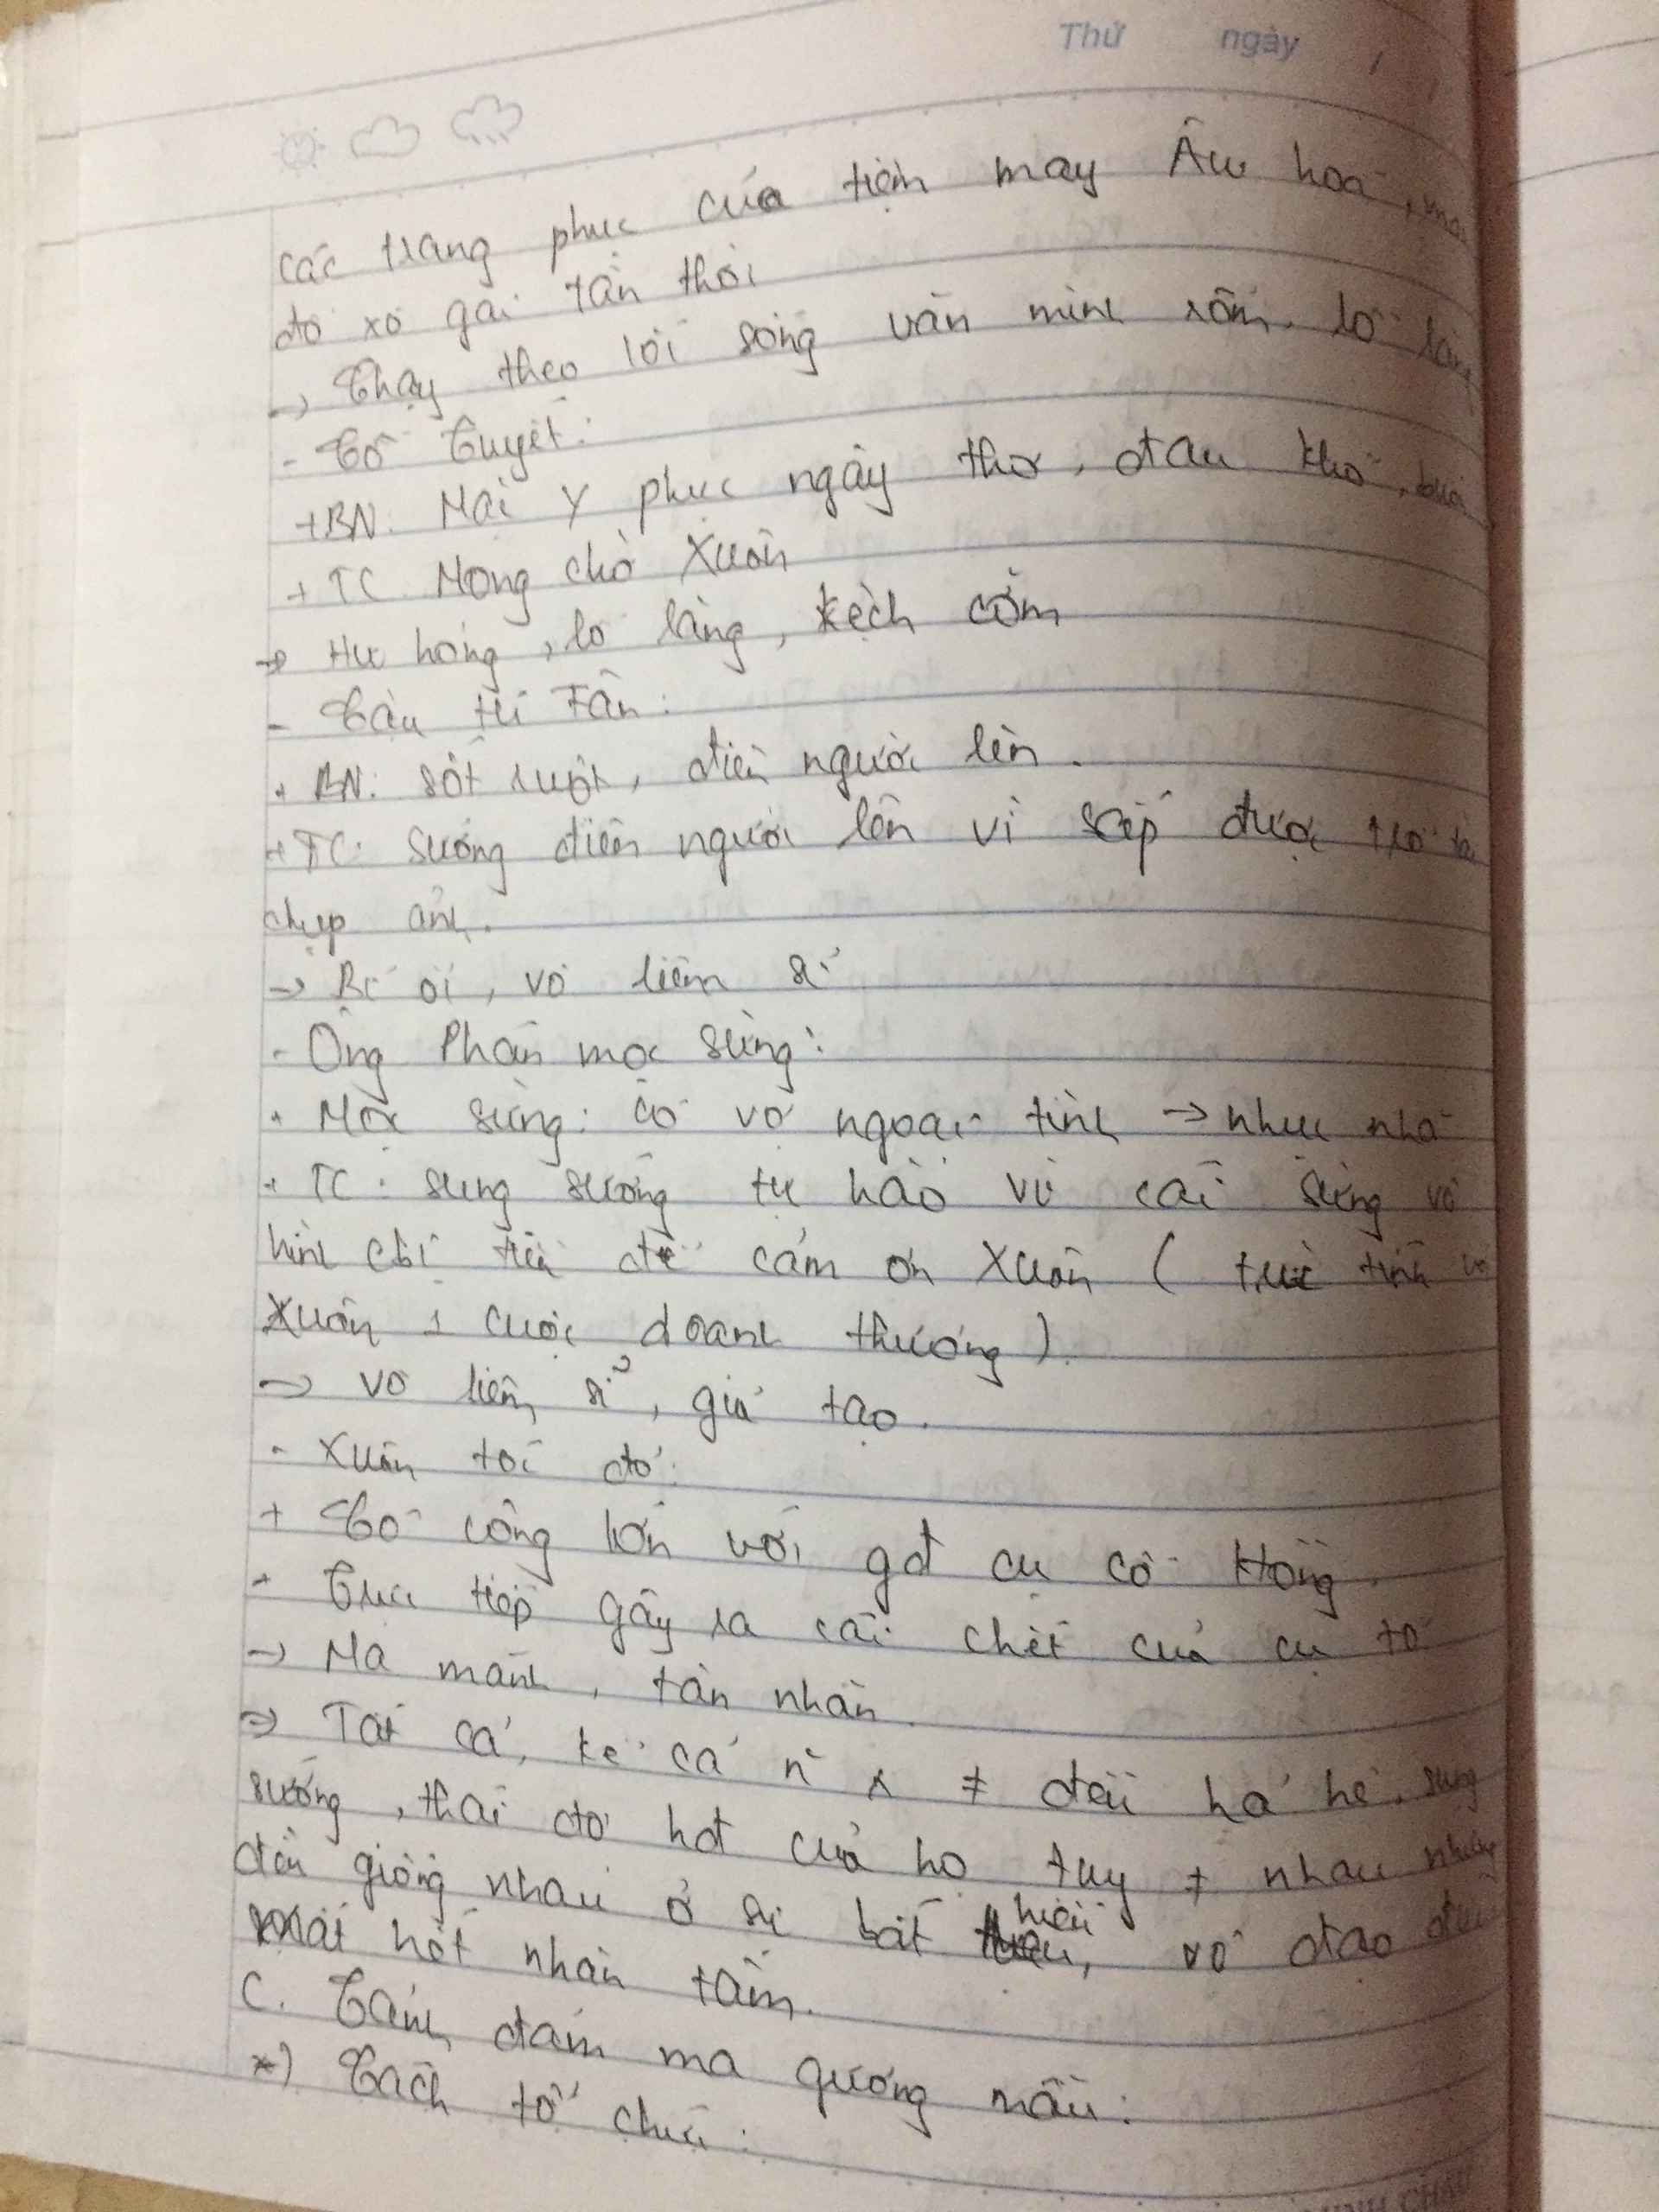 Thứ ngày /
các trang phục của tiệm may Âu hoá,
đồ xô gai tân thời
→ Chạy theo lối sống văn minh rởm, lố lăng
- Cô Tuyết:
+ BN: Mặc y phục ngây thơ, đau khổ,
+ TC: Mong chờ Xuân
→ Hư hỏng, lố lăng, kệch cỡm
- Cậu tú Tân:
+ BN: sốt ruột, điên người lên.
+ TC: Sướng điên người lên vì sắp được trổ tài
chụp ảnh.
→ Bỉ ổi, vô liêm sỉ
- Ông Phán mọc sừng:
+ Mọc sừng: có vợ ngoại tình → nhục nhã
+ TC: sung sướng tự hào vì cái sừng vô
hình chi tiền để cảm ơn Xuân ( tính
Xuân 1 cuộc doanh thương).
→ vô liêm sỉ, giả tạo.
- Xuân tóc đỏ:
+ Có công lớn với gđ cụ cố Hồng.
+ Trực tiếp gây ra cái chết của cụ tổ
→ Ma mãnh, tàn nhẫn.
⇒ Tất cả, kể cả n ≠ đều hả hê, sung
sướng, thái độ hđ của họ tuy ≠ nhau nhưng
đều giống nhau ở sự bất hiếu, vô đạo đức
mất hết nhân tâm.
C. Cảnh đám ma gương mẫu:
*) Cách tổ chức: